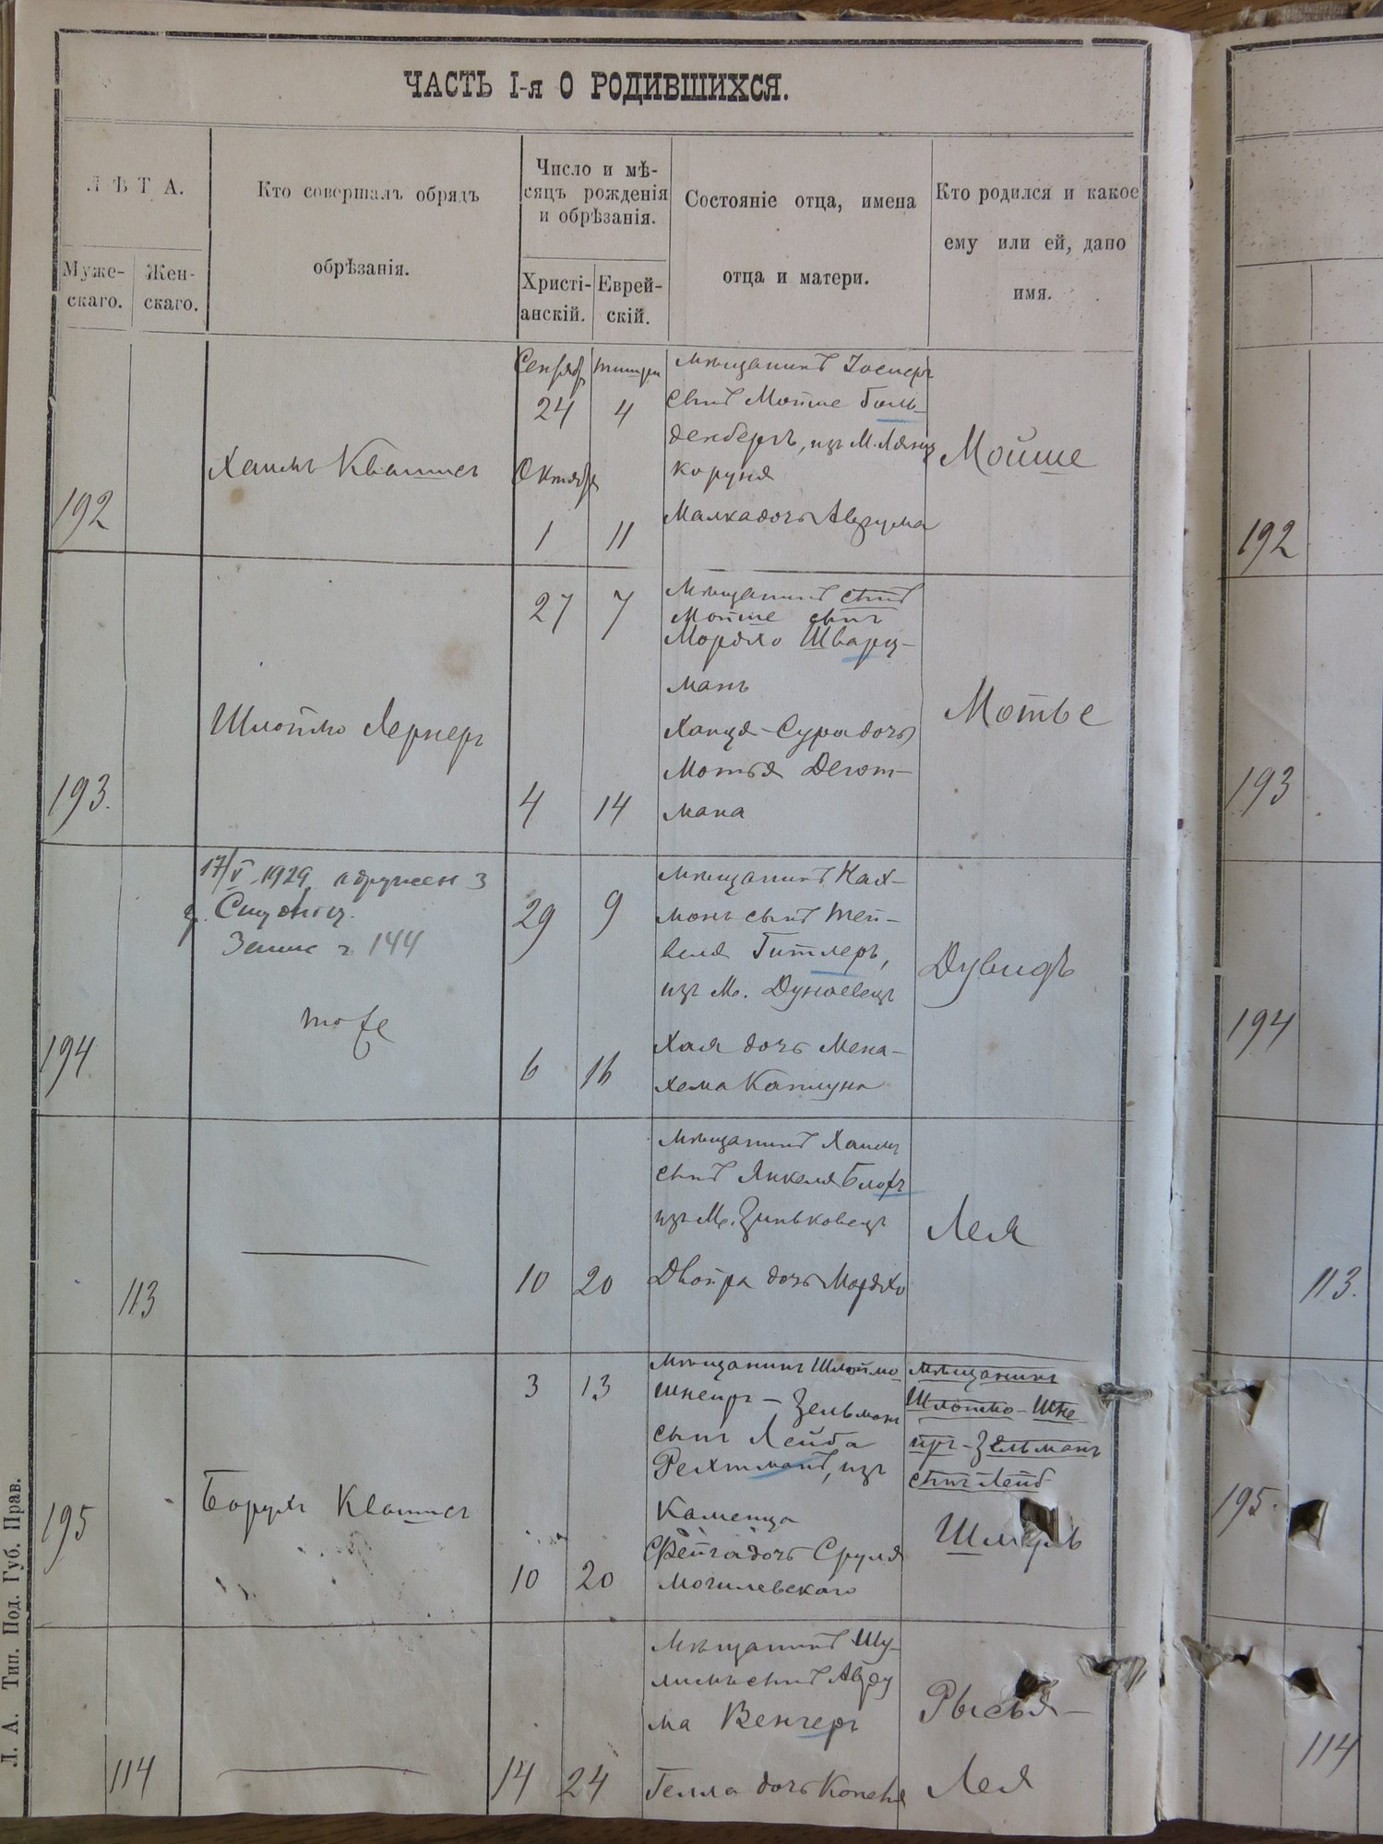 ЧАСТЬ I-я О РОДИВШИХСЯ.
ЛѢТА.
Муже-
скаго.
Жен-
скаго.
Кто совершалъ обрядъ
обрѣзанія.
Число и мѣ-
сяцъ рожденія
и обрѣзанія.
Христі-
анскій.
Еврей-
скій.
Состояніе отца, имена
отца и матери.
Кто родился и какое
ему или ей, дано
имя.
192
Хаимъ Квашисъ
24
4
Октября
1
11
Мѣщанинъ
сынъ Мойше Голь-
денбергъ, изъ М. Лянц
коруня
Малка дочь Аврума
Мойше
192
193.
Шлоймо Лернеръ
27
7
4
14
Мѣщанинъ сынъ
Мойше сынъ
Мордко Шварц-
манъ
Ханця-Сура дочь
Мотья Дехт-
мана
Мотье
193
194
17/V 1929
Запис ч 144
тоже
29
9
6
16
Мѣщанинъ Нах-
монъ сынъ Тей-
веля Гитлеръ,
изъ М. Дунаевецъ
Хая дочь Мена-
хема Каплуна
Дувидъ
194
113
10
20
Мѣщанинъ Хаимъ
сынъ Янкеля Блохъ
изъ М. Зиньковецъ
Двойра дочь Мордко
Лея
113.
195
Борухъ Квашисъ
3
13
10
20
Мѣщанинъ Шлоймо
Шнеиръ-Зельманъ
сынъ Лейба
Рехтманъ, изъ
Каменца
Фейга дочь Сруля
Могилевскаго
Мѣщанинъ
Шлоймо-Шне
иръ-Зельманъ
сынъ Лейб
195.
114
14
24
Мѣщанинъ Шу-
лимъ сынъ Авру
ма Венгеръ
Гелла дочь
Рысья-
Лея
114
Л. А. Тип. Под. Губ. Прав.